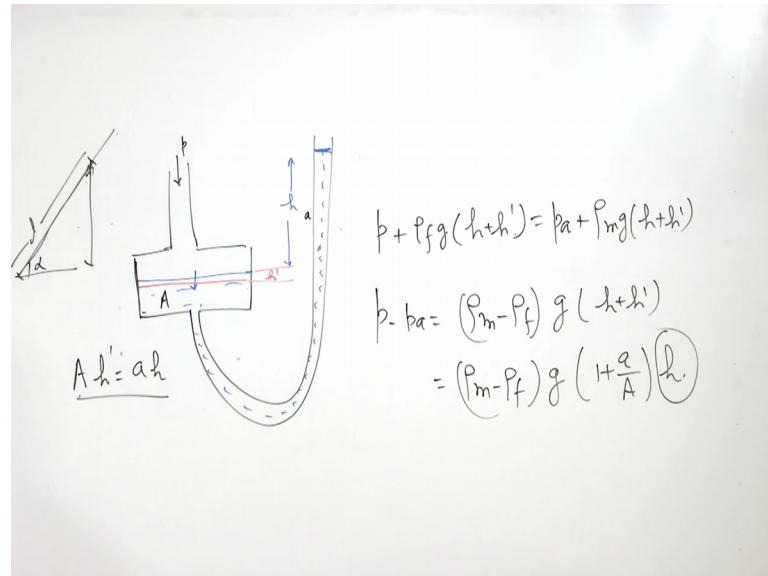 p
h
a
l
α
h'
A
Ah' = ah
p + ρfg(h+h') = pa + ρmg(h+h')
p - pa = (ρm-ρf) g (h+h')
= (ρm-ρf) g (1+a/A) h.